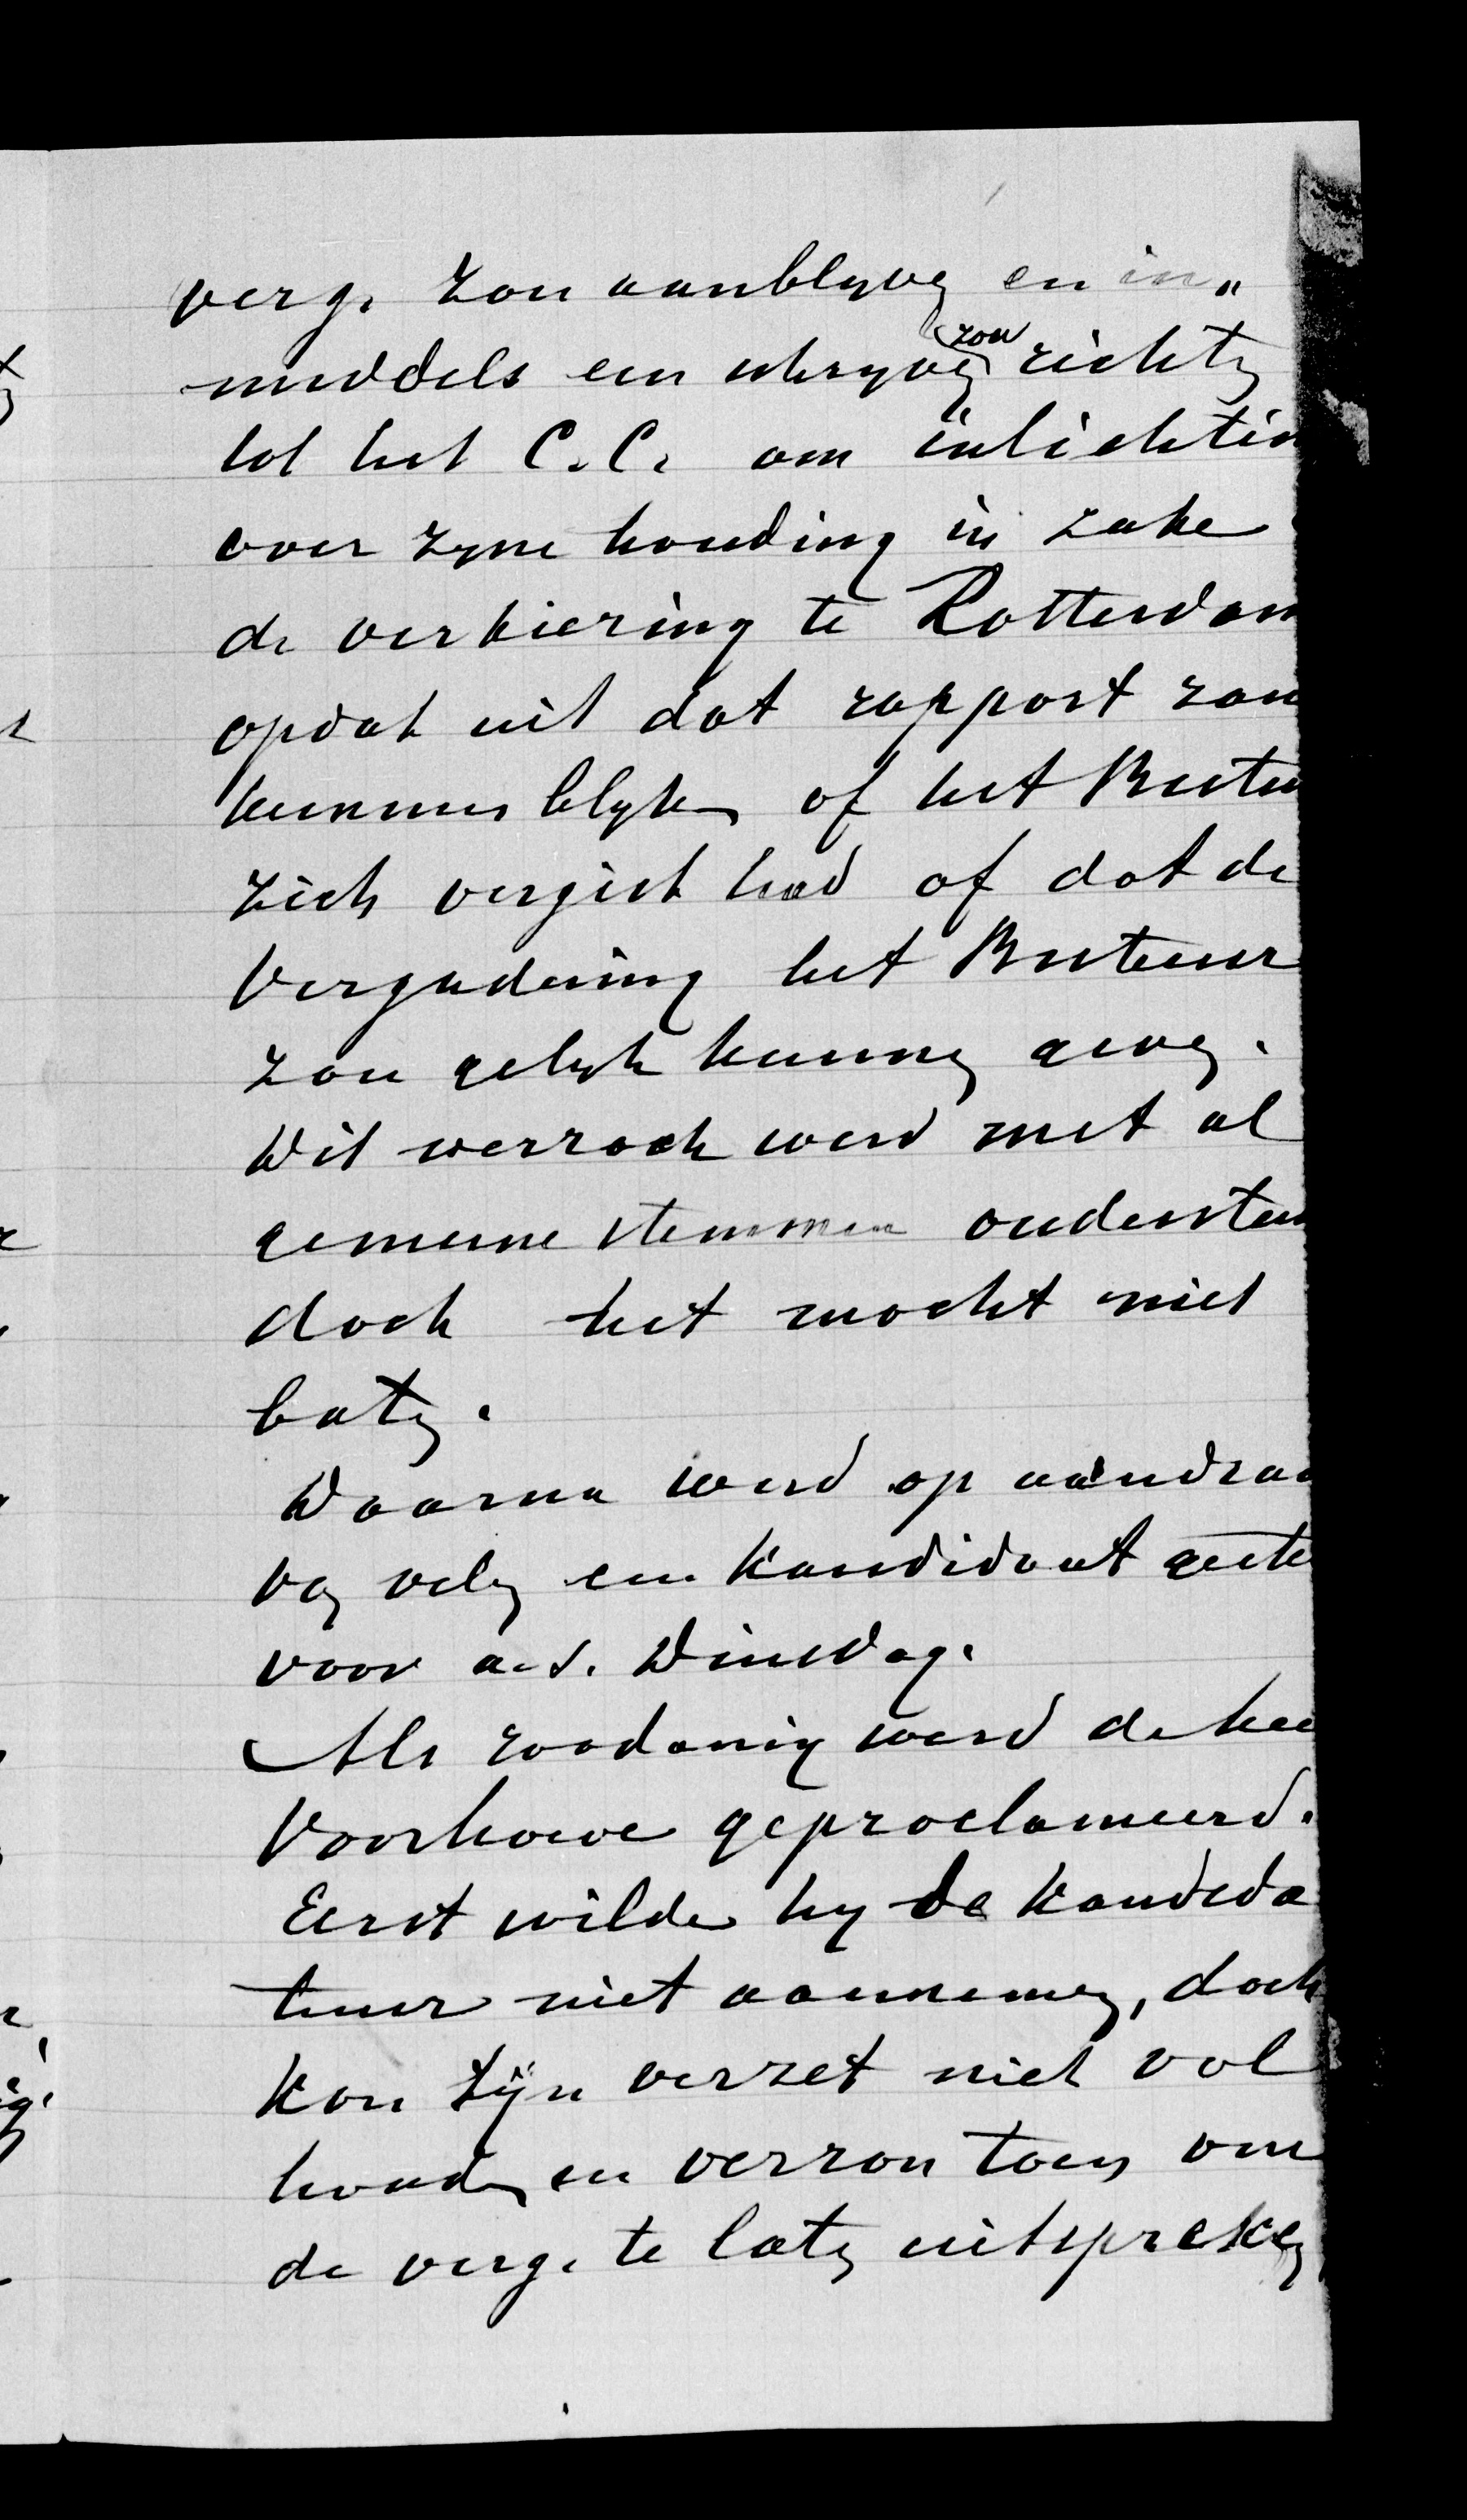 verg. zou aanblijven en in„
middels een schrijven zou richten
tot het C.C. om inlichtin
over zijne houding in zake
de verkiezing te Rotterdam
opdat uit dat rapport zou
kunnen blijken of het Bestuu
zich vergist had of dat de
Vergadering het Bestuur
zou gelijk kunnen geven.
Dit verzoek werd met al
gemeene stemmen ondersteu
doch het mocht niet
baten.
Daarna werd op aandraa
van velen een Kandidaat geste
voor a.s. Dinsdag.
Als zoodanig werd de hee
Voorhoeve geproclameerd.
Eerst wilde hij de Kandida
tuur niet aannemen, doch
kon zijn verzet niet vol
houden en verzon toen om
de verg. te laten uitspreken